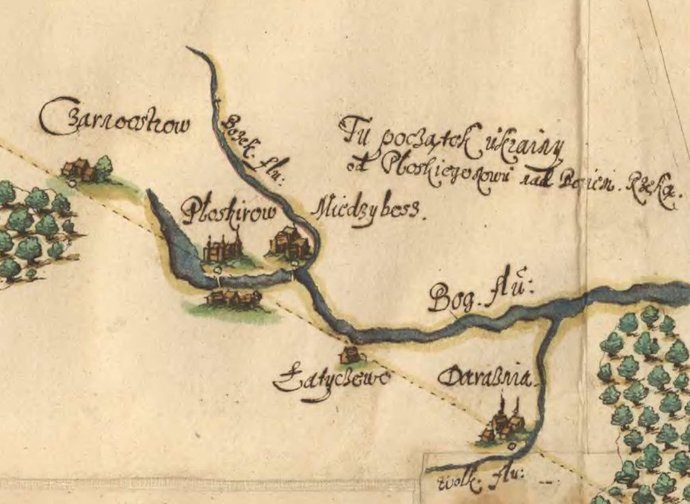 Czarnoostrow
Bożek. flu:
Tu początek ukrainy
od Płoskirowa nad Bogiem. Rzeka.
Płoskirow
Międzyboss.
Bog. flu:
Łatyczowo
Daraźnia.
wolk. flu: